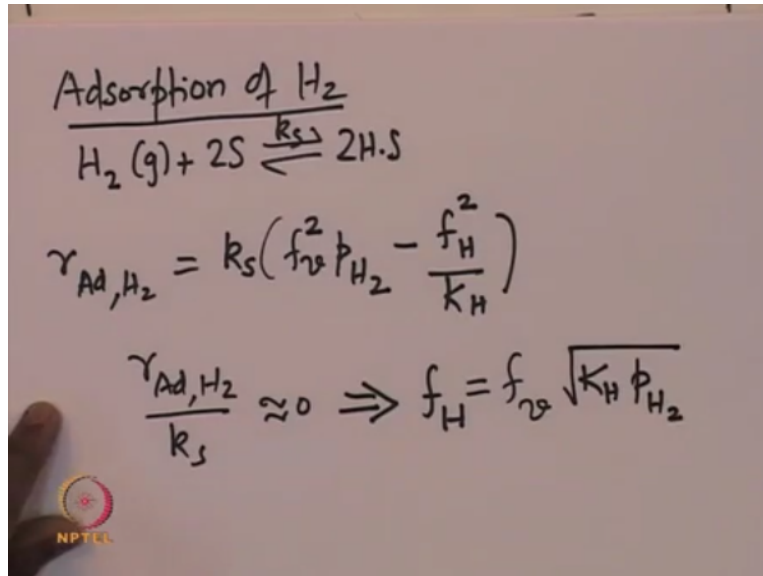 Adsorption of H₂
H₂ (g) + 2S ⇌ 2H·S kₛ
r_Ad,H₂ = kₛ(f_v² p_H₂ − f_H² / K_H)
r_Ad,H₂ / kₛ ≈ 0 ⇒ f_H = f_v √(K_H p_H₂)
NPTEL